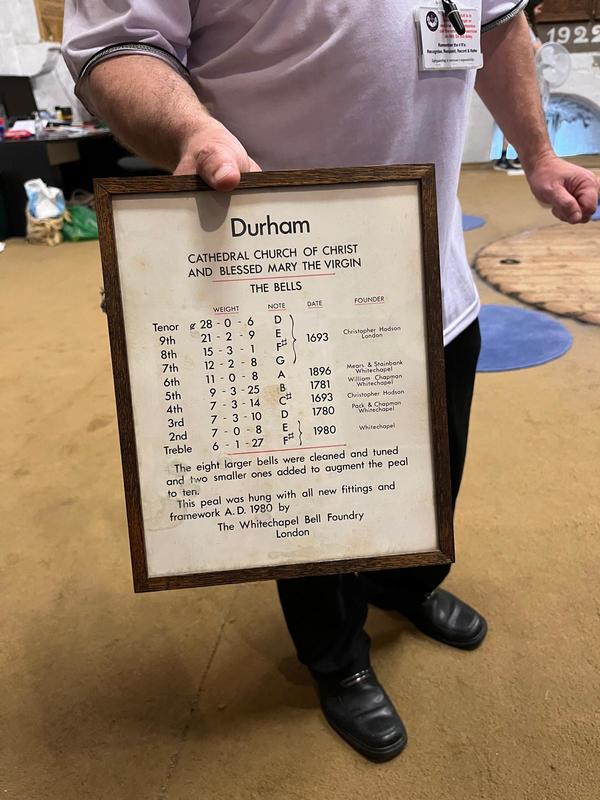 1922
Remember the 4 R's
Recognise, Respond, Record & Refer
Durham
CATHEDRAL CHURCH OF CHRIST
AND BLESSED MARY THE VIRGIN
THE BELLS
WEIGHT NOTE DATE FOUNDER
Tenor 28 - 0 - 6 D
9th 21 - 2 - 9 E 1693 Christopher Hodson London
8th 15 - 3 - 1 F#
7th 12 - 2 - 8 G
6th 11 - 0 - 8 A 1896 Mears & Stainbank Whitechapel
5th 9 - 3 - 25 B 1781 William Chapman Whitechapel
4th 7 - 3 - 14 C# 1693 Christopher Hodson
3rd 7 - 3 - 10 D 1780 Pack & Chapman Whitechapel
2nd 7 - 0 - 8 E 1980 Whitechapel
Treble 6 - 1 - 27 F#
The eight larger bells were cleaned and tuned
and two smaller ones added to augment the peal
to ten.
This peal was hung with all new fittings and
framework A.D. 1980 by
The Whitechapel Bell Foundry
London